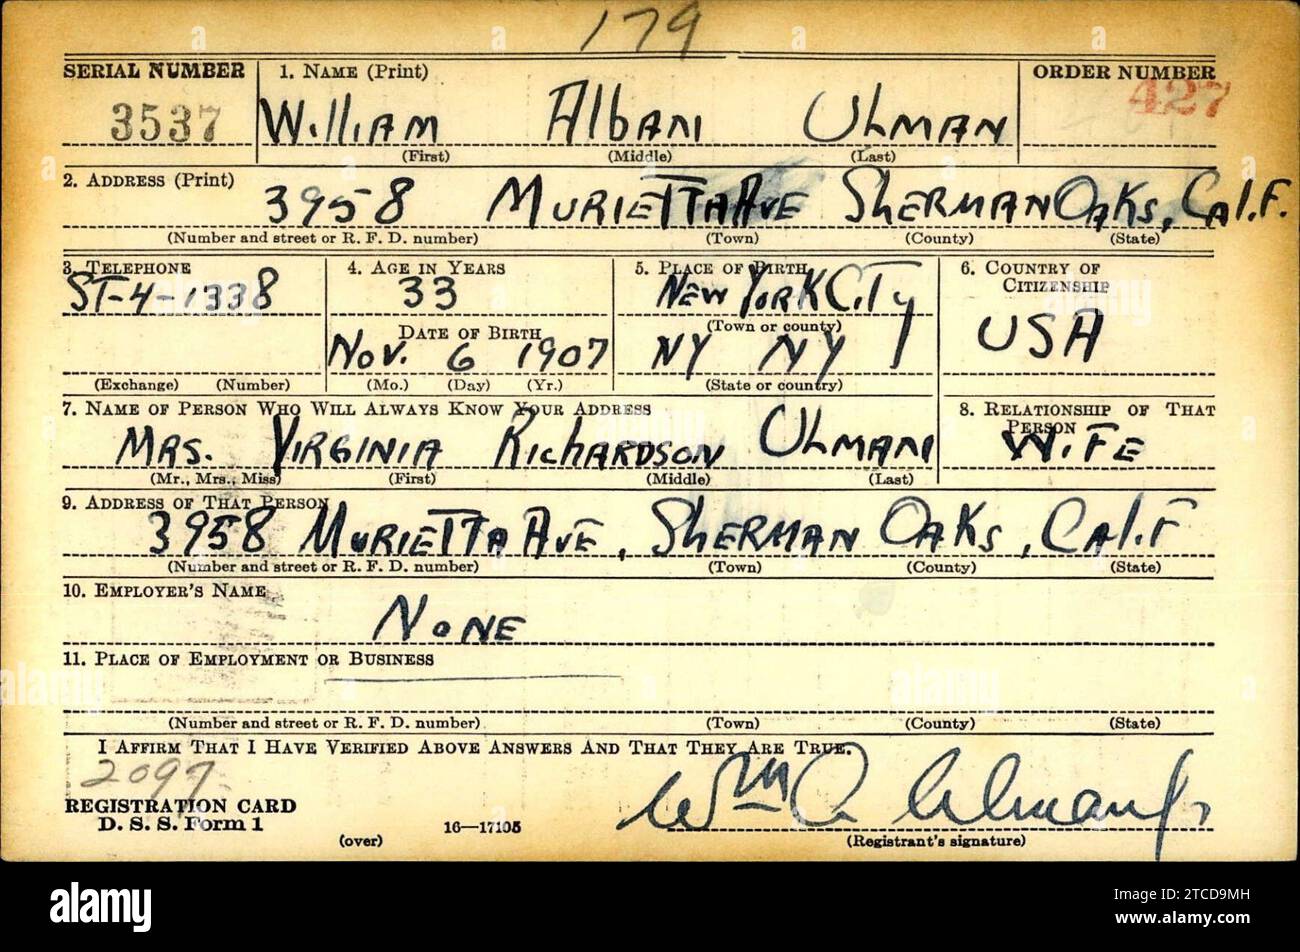 179
SERIAL NUMBER 1. NAME (Print) ORDER NUMBER
3537 William Alban Ulman 427
(First) (Middle) (Last)
2. ADDRESS (Print)
3958 Murietta Ave Sherman Oaks, Calif.
(Number and street or R. F. D. number) (Town) (County) (State)
3. TELEPHONE 4. AGE IN YEARS 5. PLACE OF BIRTH 6. COUNTRY OF CITIZENSHIP
ST-4-1338 33 New York City
DATE OF BIRTH (Town or county) USA
Nov. 6 1907 NY NY
(Exchange) (Number) (Mo.) (Day) (Yr.) (State or country)
7. NAME OF PERSON WHO WILL ALWAYS KNOW YOUR ADDRESS 8. RELATIONSHIP OF THAT PERSON
Mrs. Virginia Richardson Ulman Wife
(Mr., Mrs., Miss) (First) (Middle) (Last)
9. ADDRESS OF THAT PERSON
3958 Murietta Ave, Sherman Oaks, Calif
(Number and street or R. F. D. number) (Town) (County) (State)
10. EMPLOYER'S NAME
None
11. PLACE OF EMPLOYMENT OR BUSINESS
(Number and street or R. F. D. number) (Town) (County) (State)
I AFFIRM THAT I HAVE VERIFIED ABOVE ANSWERS AND THAT THEY ARE TRUE.
2097
Wm A Ulman Jr
REGISTRATION CARD
D. S. S. Form 1
(over) 16—17105 (Registrant's signature)
alamy
Image ID: 2TCD9MH
www.alamy.com